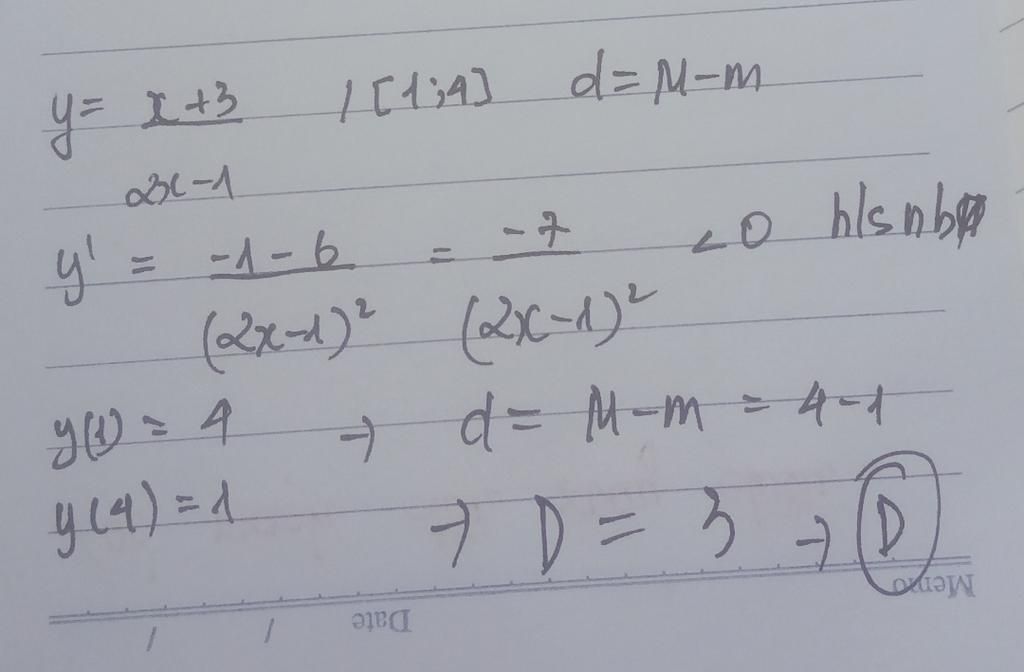 y = x+3 / [1;4] d = M-m
2x-1
y' = -1-6 = -7 <0 h/s nb
(2x-1)² (2x-1)²
y(1) = 4 → d = M-m = 4-1
y(4) = 1 → D = 3 → D
Memo
Date / /